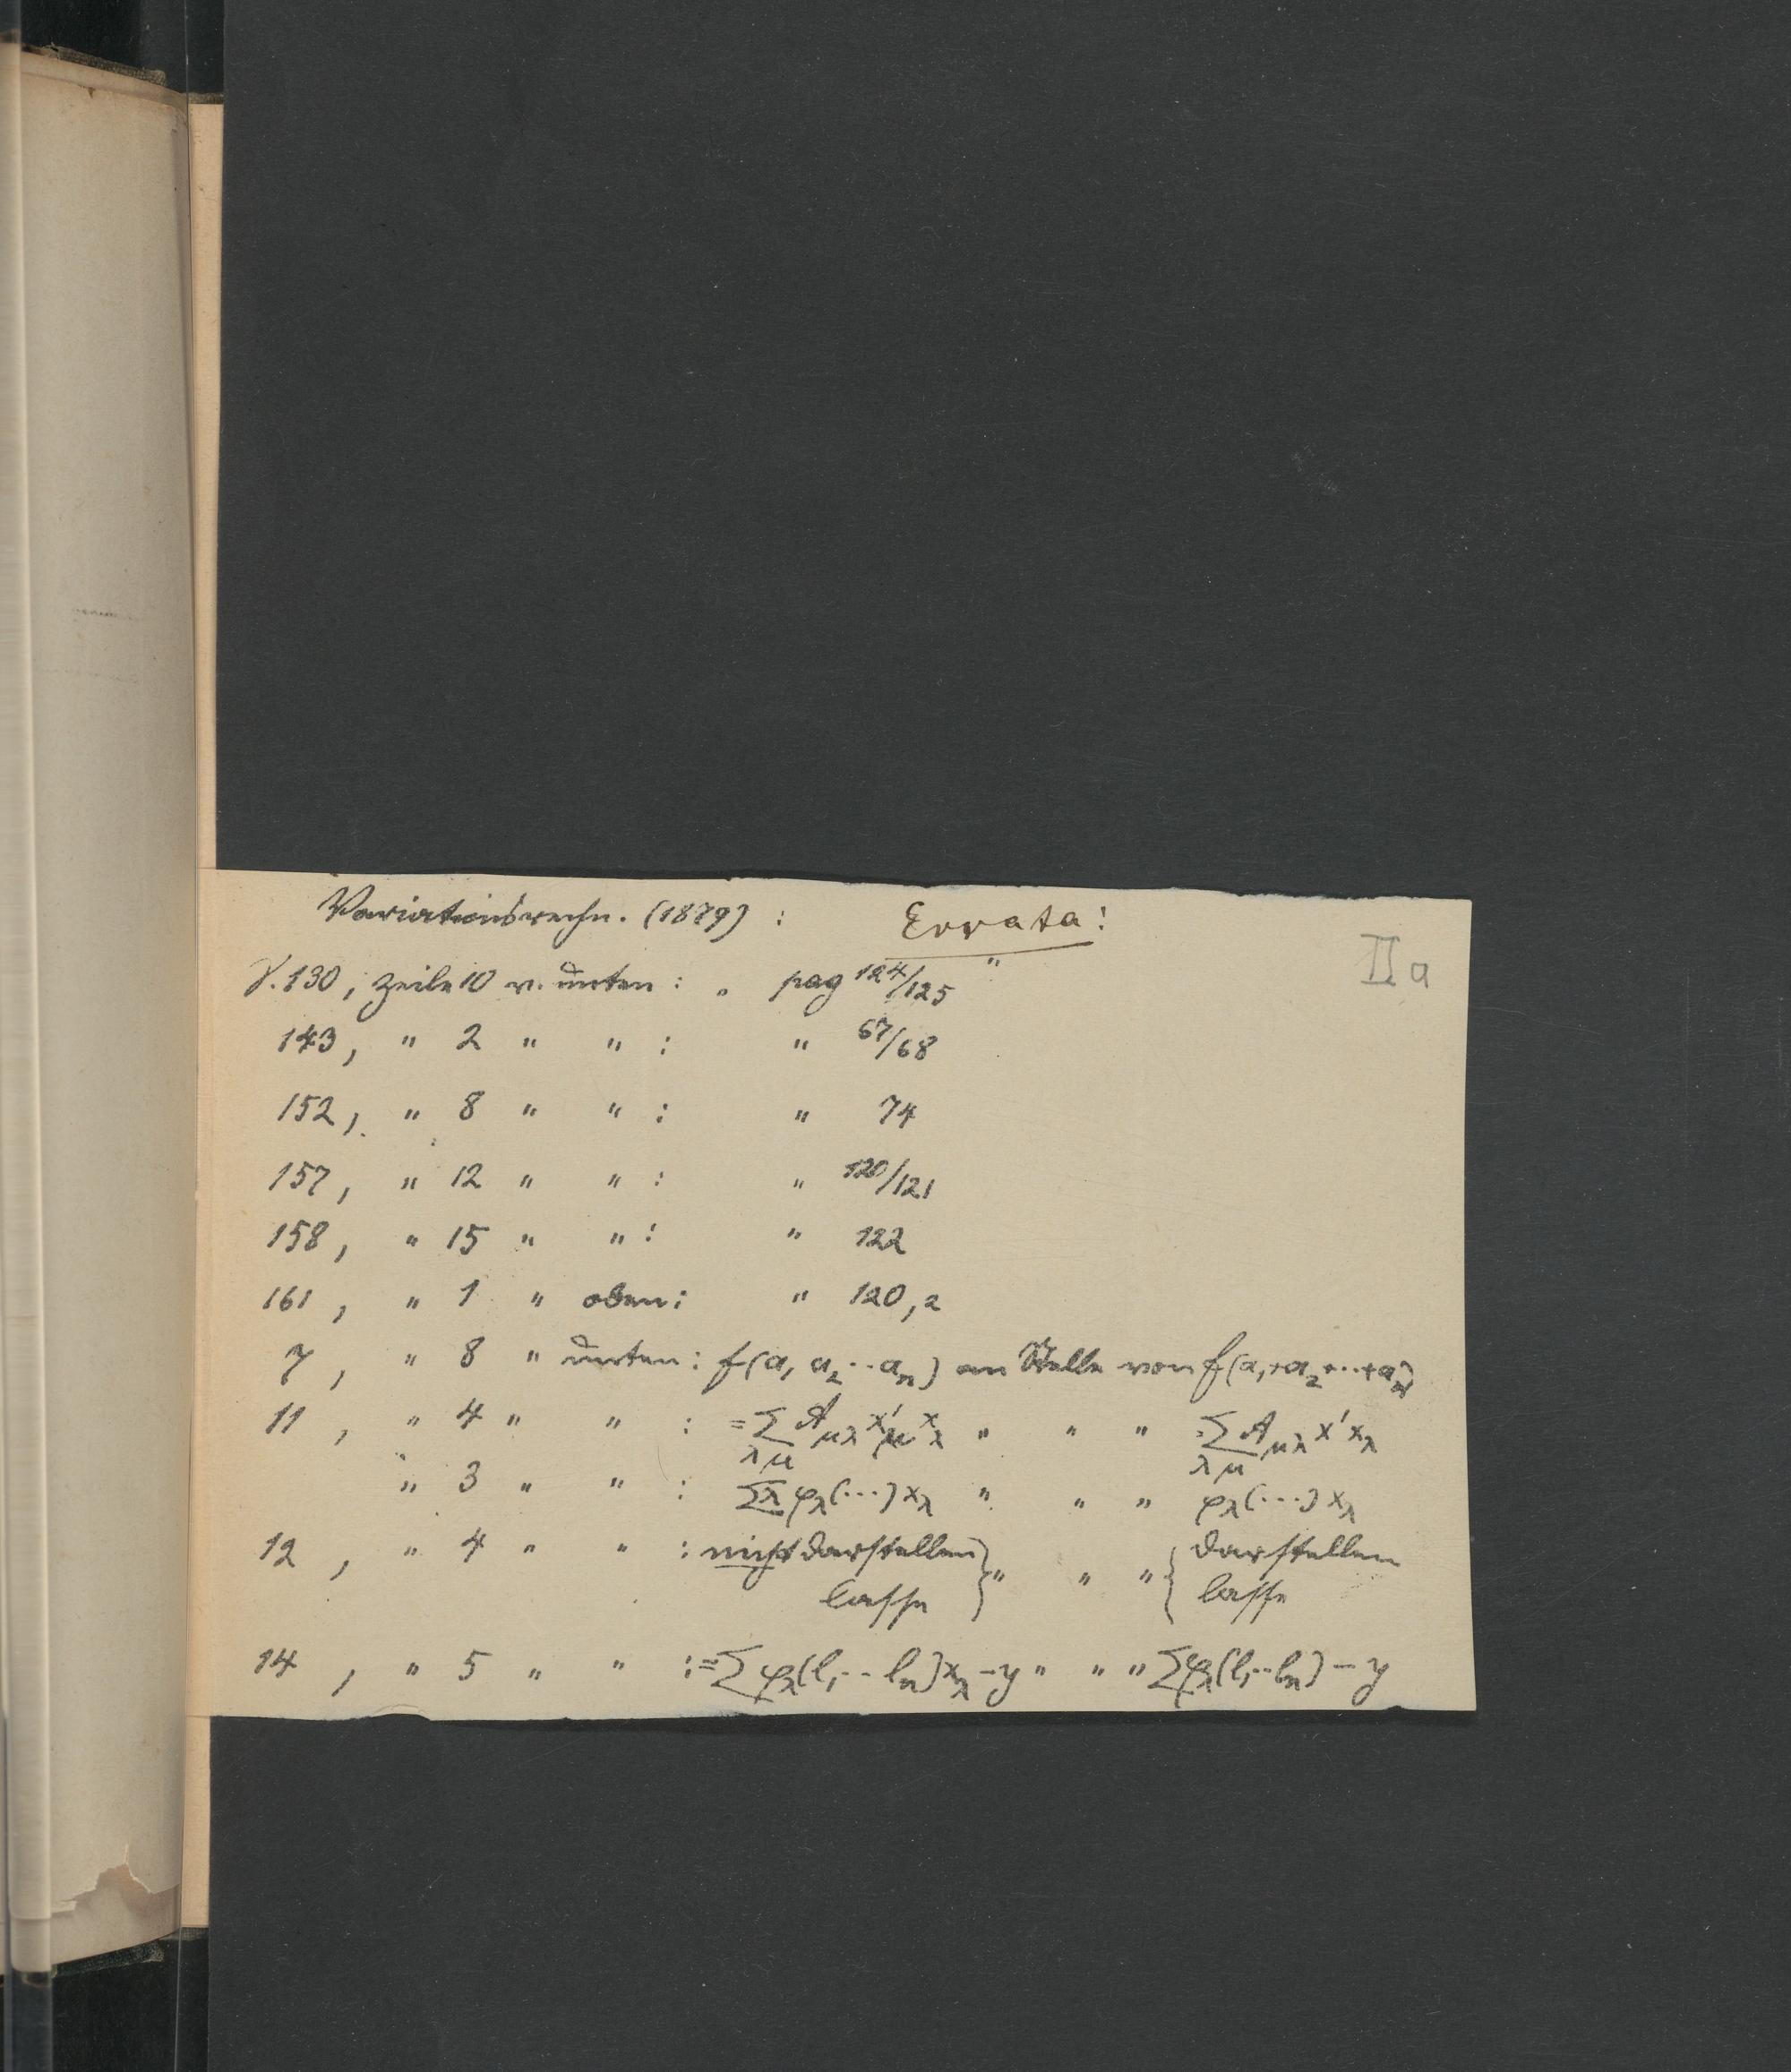 Variationsrechn. (1879) : Errata!
IIa
S. 130, Zeile 10 v. unten : „ pag 124/125 "
143, " 2 " " : " 67/68
152, " 8 " " : " 74
157, " 12 " " : " 120/121
158, " 15 " " : " 122
161, " 1 " oben : " 120,2
7, " 8 " unten : f(a₁ a₂ ‥ aₙ) an Stelle von f(a₁+a₂+⋯+aₙ)
11, " 4 " " : =∑_{λμ} A_{μλ} x'_μ x_λ " " " =∑_{λμ} A_{μλ} x' x_λ
" 3 " " : ∑λ φ_λ(⋯) x_λ " " " φ_λ(⋯) x_λ
12, " 4 " " : nicht darstellen } " " " { darstellen
lasse lasse
14, " 5 " " : =∑φ_λ(l₁ ‥ lₙ)x_λ – y " " " ∑φ_λ(l₁ ‥ lₙ) – y